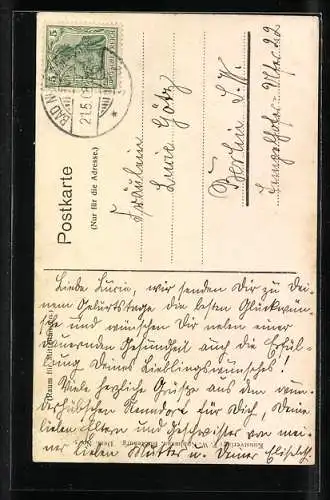 Postkarte
(Nur für die Adresse.)
BAD N
21.5.0
5 5
Fräulein
Lucie Götz
Berlin S.W.
Tempelhofer-Ufer 22
(Raum für Mitteilungen.)
Liebe Lucie, wir senden Dir zu Dei-
nem Geburtstage die besten Glückwün-
sche und wünschen Dir neben einer
dauernden Gesundheit auch die Erfül-
lung Deines Lieblingswunsches!
Viele herzliche Grüsse aus dem wun-
derhübschen Nenndorf für Dich, Deine
lieben Eltern und Geschwister von mei-
ner lieben Mutter u. Deiner Elisabeth.